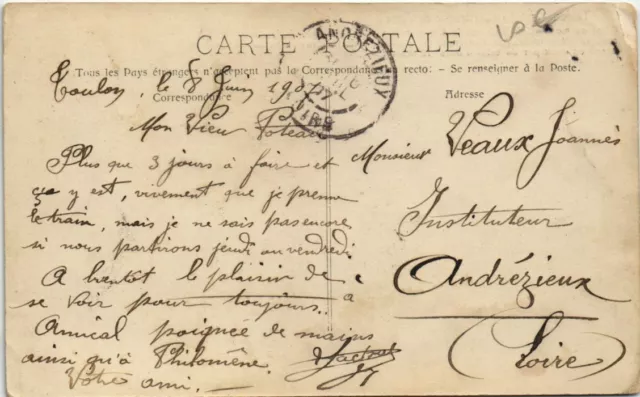 CARTE POSTALE
Tous les Pays étrangers n'acceptent pas la Correspondance au recto: - Se renseigner à la Poste.
Correspondance
Adresse
ANDREZIEUX
Toulon, le 8 Juin 190
Mon Vieux Poteau
Plus que 3 jours à faire et
ça y est, vivement que je prenne
le train, mais je ne sais pas encore
si nous partirons jeudi ou vendredi
A bientôt le plaisir de
se voir pour toujours..
Amical poignée de mains
ainsi qu'à Philomène.
Votre ami. -
Monsieur Veaux Joannès
Instituteur
Andrézieux
(Loire)